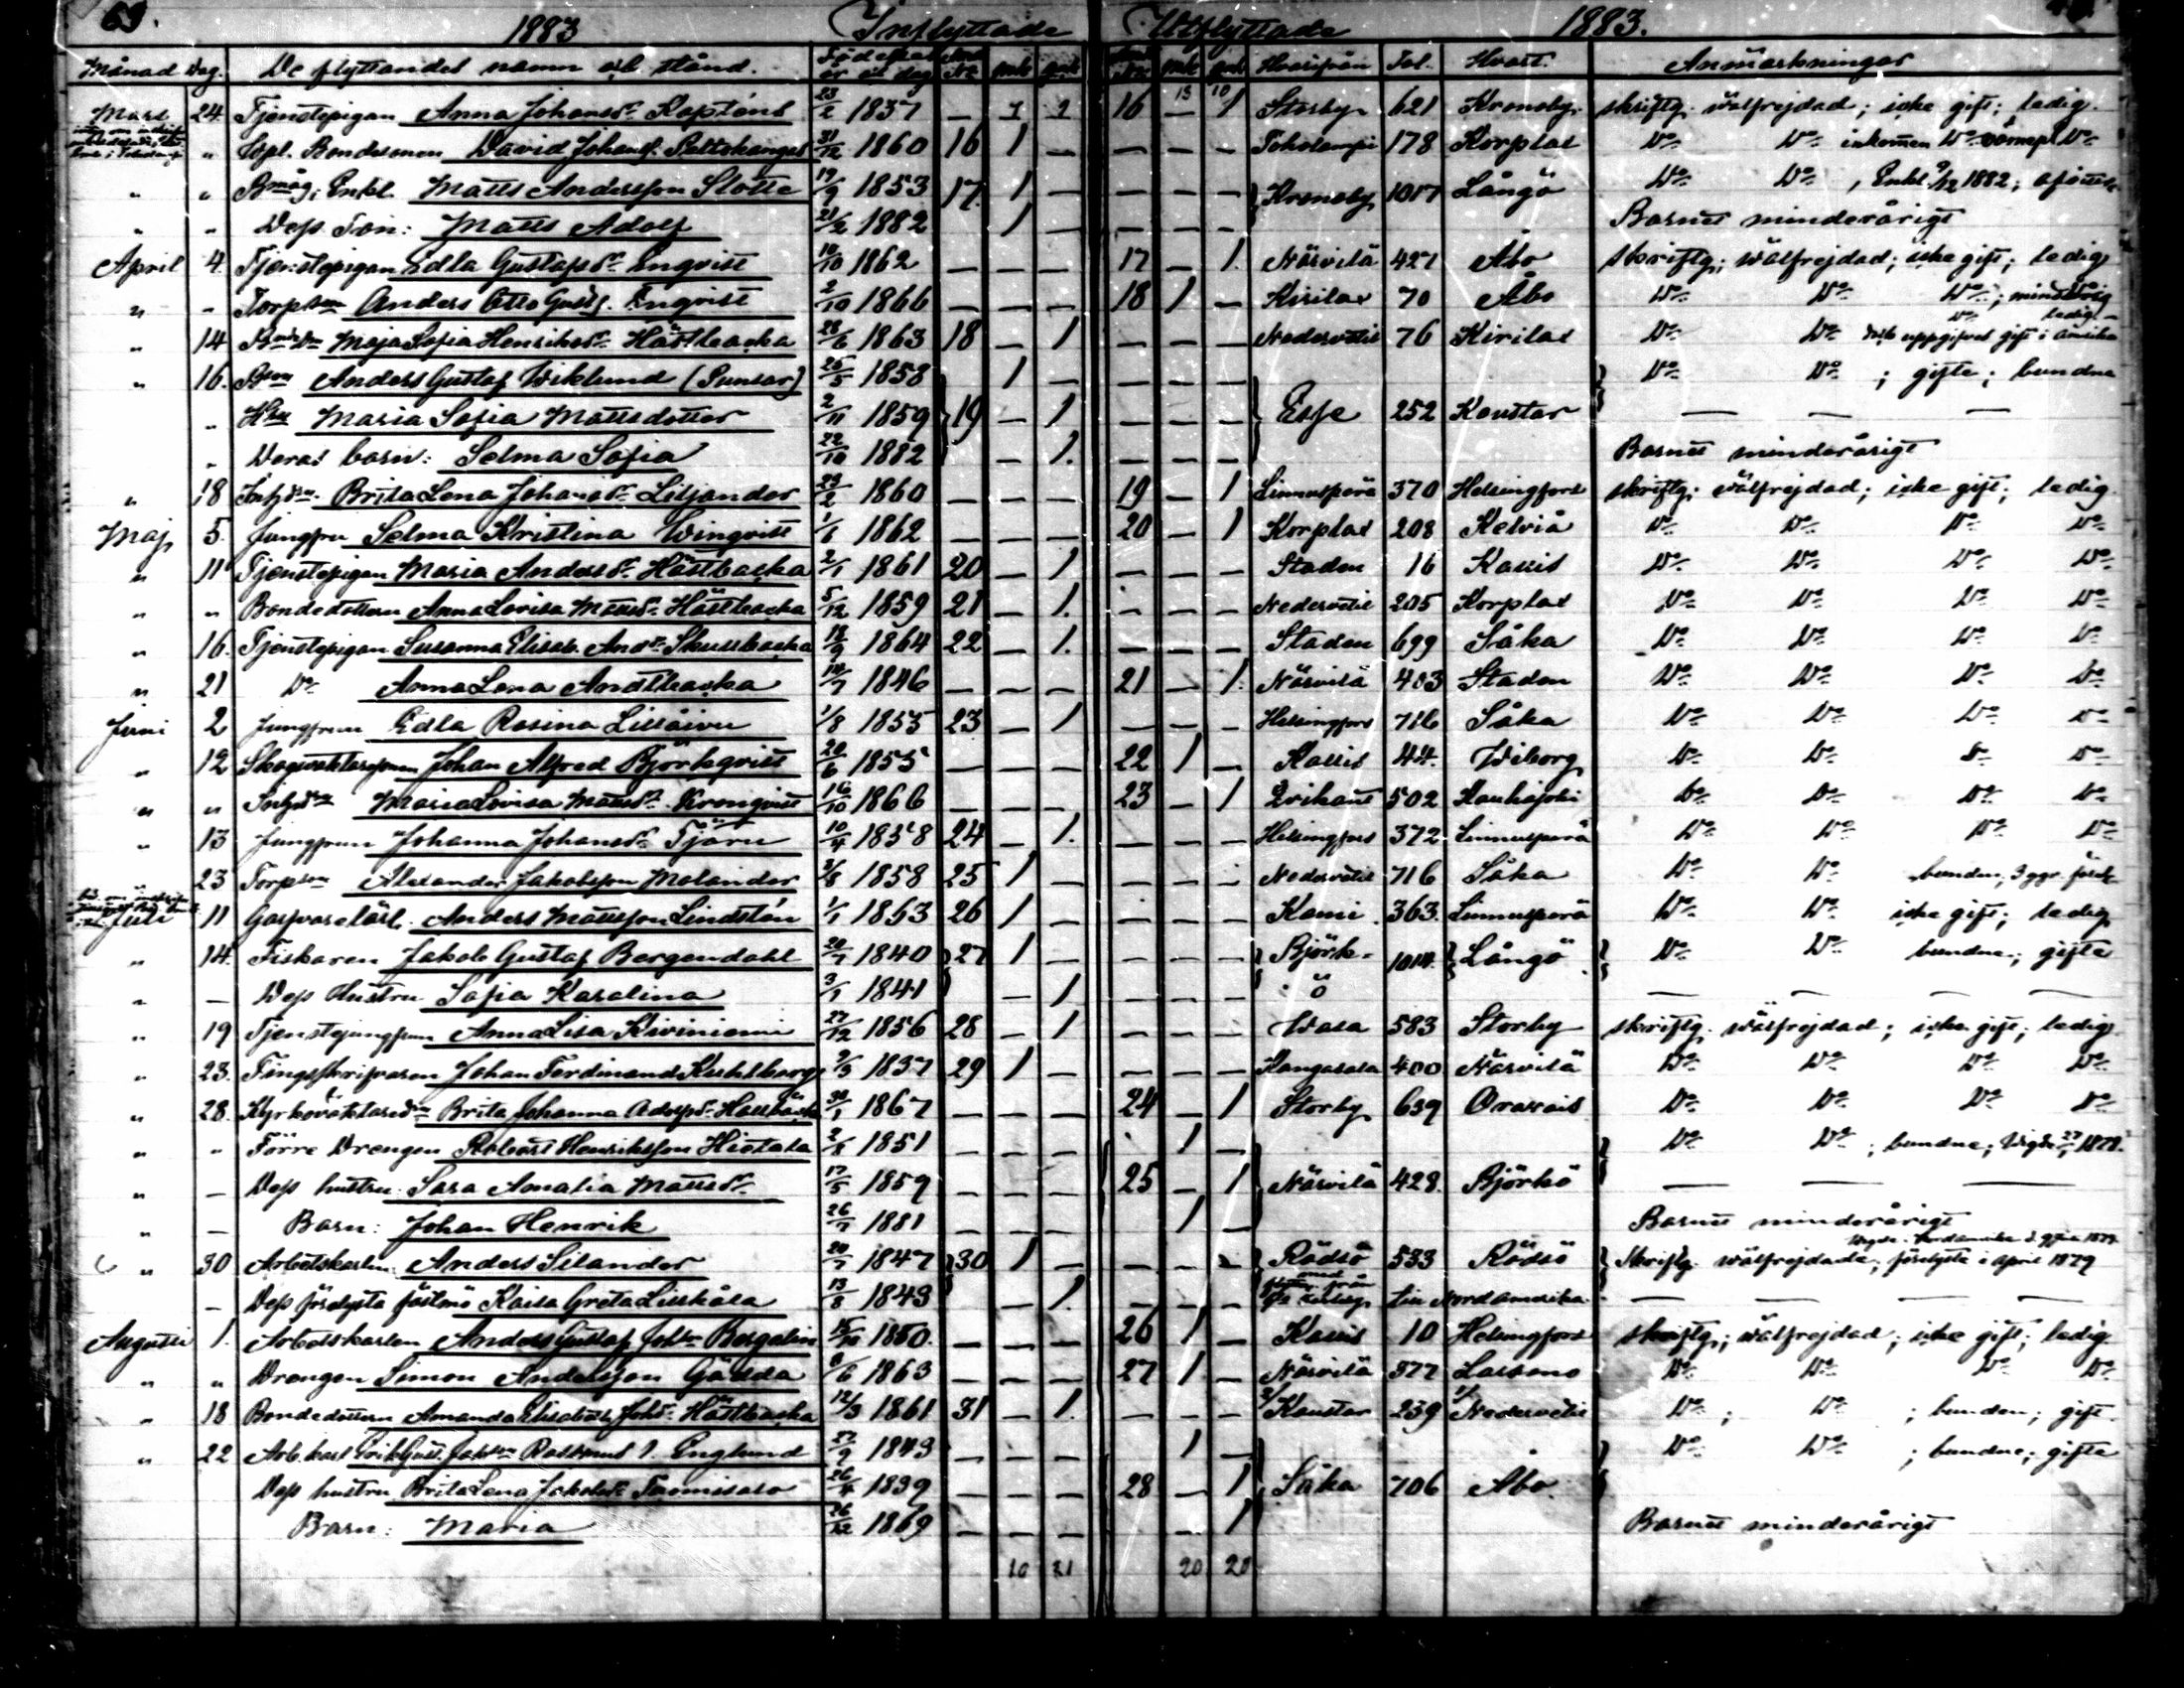 69. 1883 Inflyttade Utflyttade 1883.
Månad Dag. De flyttandes namn och stånd. Födelse år o. dag No mk qvk No mk qvk Hvarifrån Fol. Hvart. Anmärkningar
13 10
Mars 24. Tjenstepigan Anna Johansdr 23/2 1837 — 16 — 1 Storby 621 Kronoby skriftg. wälfrejdad; icke gift; ledig.
" Bondesonen David Johanss. 31/12 1860 16 1 — — — — 178 Korplax Do Do inkommen Do Do
" " Bmåg; Enkl. Matts Andersson Slotte 19/9 1853 17. 1 — — — — Kronoby 1017 Långö Do Do , Enkl. 9/12 1882;
" " Dess Son: Matts Adolf 21/2 1882 1 — — — — Barnet minderårigt
April 4. Tjenstepigan Edla Gustafsdr Enqvist 10/10 1862 — — — 17 — 1. Närvilä 427 Åbo skriftg; wälfrejdad; icke gift; ledig
" " Torpson Anders Otto Gust. Enqvist 2/10 1866 — — — 18 1 — Kirilax 70 Åbo Do Do Do; minderårig
" 14 Maja Sofia Henriksdr Hästbacka 28/6 1863 18 — 1 Nedervetil 76 Kirilax Do Do uppgifves gift i Amerika
" 16. Bson Anders Gustaf Wiklund (Punsar) 26/5 1858 1 — — — — Do Do ; gifte; bundna
" Hu Maria Sofia Mattsdotter 2/11 1859 19 — 1 — — — Esse 252 Koustar — — —
" Deras barn: Selma Sofia 22/10 1882 — 1. — — — Barnet minderårigt
" 18 Brita Lena Johansdr Liljander 23/2 1860 — — — 19 — 1 Linnusperä 370 Helsingfors skriftg; wälfrejdad; icke gift; ledig.
Maj 5. Jungfru Selma Kristina Winqvist 1/6 1862 — — — 20 — 1 Korplax 208 Kelviå Do Do Do Do
" 11 Tjenstepigan Maria Andersdr Hästbacka 2/1 1861 20 — 1 — — — Staden 16 Kallis Do Do Do Do
" " Bondedottern Anna Lovisa Mattsdr Hästbacka 5/12 1859 21 — 1. — — — Nedervetil 205 Korplax Do Do Do Do
" 16. Tjenstepigan Susanna Elisab. Andr Skullbacka 18/9 1864 22 — 1. — — — Staden 699 Såka Do Do Do Do
" 21 Do Anna Lena Andtbacka 14/7 1846 — — — 21 — 1. Närvilä 403 Staden Do Do Do Do
Juni 2 Jungfrun Edla Rosina Lillåivu 1/8 1855 23 — 1 — — — Helsingfors 716 Såka Do Do Do Do
" 12 Skogvaktaresonen Johan Alfred Björkqvist 20/6 1855 — — — 22 1 — Kallis 44. Wiborg Do Do Do Do
" " Maria Lovisa Mattsdr Kronqvist 16/10 1866 — — — 23 — 1 502 Kauhajoki Do Do Do Do
" 13 Jungfrun Johanna Johansdr Tjäru 10/4 1858 24 — 1. — — — Helsingfors 372 Linnusperä Do Do Do Do
23 Torpson Alexander Jakobsson Molander 2/8 1858 25 1 — — — — Nedervetil 716 Såka Do Do bunden; 3 ggr
Juli 11 Garfvarelärl. Anders Mattsson Lindstén 1/1 1863 26 1 — — — — Kemi 363. Linnusperä Do Do icke gift; ledig
" 14. Fiskaren Jakob Gustaf Bergendahl 20/7 1840 27 1 — — — — Björk- 1014. Långö Do Do bundne; gifta
" — Dess Hustru Sofia Karolina 3/1 1841 — 1 — — — ö — — — —
" 19 Tjenstejungfrun Anna Lisa Kiviniemi 27/12 1856 28 — 1 — — — Wasa 583 Storby skriftg. wälfrejdad; icke gift; ledig
" 23. Tingsskrifvaren Johan Ferdinand Kuhlberg 2/3 1837 29 1 — — — — Kangasala 400 Närvilä Do Do Do Do
" 28. Kyrkovaktaredr Brita Johanna Adolfsdr 30/1 1867 — — — 24 — 1 Storby 639 Oravais Do Do Do Do
" " Förre Drengen Robert Henriksson Hietala 2/8 1851 — — — 1 — Do Do ; bundne; Wigde 27/ 1878.
" — Dess hustru Sara Amalia Mattsdr 17/5 1859 — — — 25 — 1 Närvilä 428. Björkö — — —
" — Barn: Johan Henrik 26/7 1881 — — — 1 — Barnet minderårigt
" 30 Arbetskarlen Anders Silander 20/7 1847 30 1 — — — — Rödsö 533 Rödsö Skriftg. wälfrejdade; förlysta i april 1879
— Dess förlysta fästmö Kaisa Greta Lillkåla 13/8 1843 — 1. — — — till Nordamerika — — —
Augusti 1. Arbetskarlen Anders Gustaf Johsn Bergelin 15/10 1850. — — — 26 1 — Kallis 10 Helsingfors skriftg; wälfrejdad; icke gift; ledig.
" " Drengen Simon Andersson Gädda 8/6 1863 — — — 27 1 — Närvilä 377 Larsmo Do Do Do Do
" 18 Bondedottern Amanda Elisabeth Johsdr Hästbacka 12/3 1861 31 — 1. — — — 2/ Koustar 239 1/ Nedervetil Do; Do ; bunden; gift.
" 22 Arb.karl Erik Gust. Jakson I. Englund 27/9 1843 — — — 1 — Do Do ; bundne; gifta
Dess hustru Brita Lena Jakobsdr 26/4 1839 — — — 28 — 1 Såka 706 Åbo
Barn: Maria 26/12 1869 — — — — 1 Barnet minderårigt
10 21 20 20